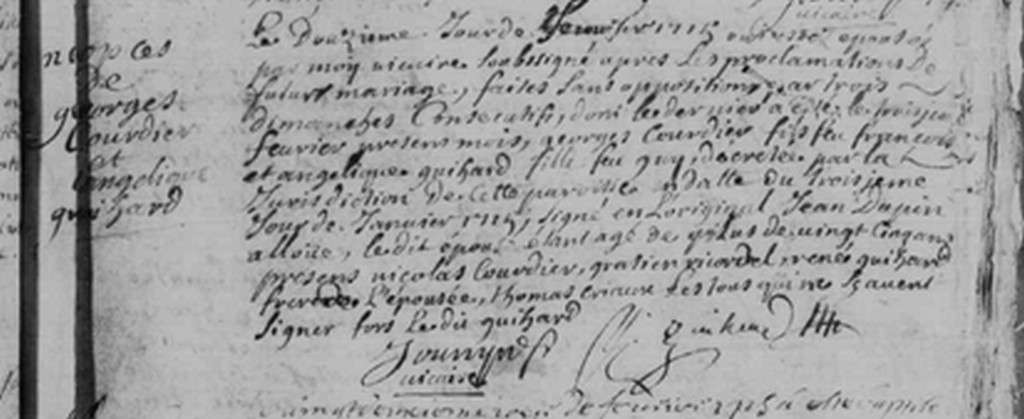 nopces
De
georges
Courdier
et
angelique
guihard
Le Douzieme Jour de fevrier 1715 ont esté epousés
par moy vicaire soubsigné apres Les proclamations De
futur mariage, faites sans opposition par trois
dimanches Consecutifs, dont le dernier a esté le troisieme
fevrier presens mois, georges Courdier fils feu francois
et angelique guihard fille feu guy, decretés par la
Jurisdiction de Cette paroisse en datte du troisieme
Jour de Janvier 1715, signé en L'original Jean Dupin
alloüé, le dit epoux étant agé de plus de vingt Cinq ans
presens nicolas Courdier, gratien picordel, rené guihard
frere de L'épousée, thomas Les tous qui ne scavent
signer fors Le dit guihard
vicaire